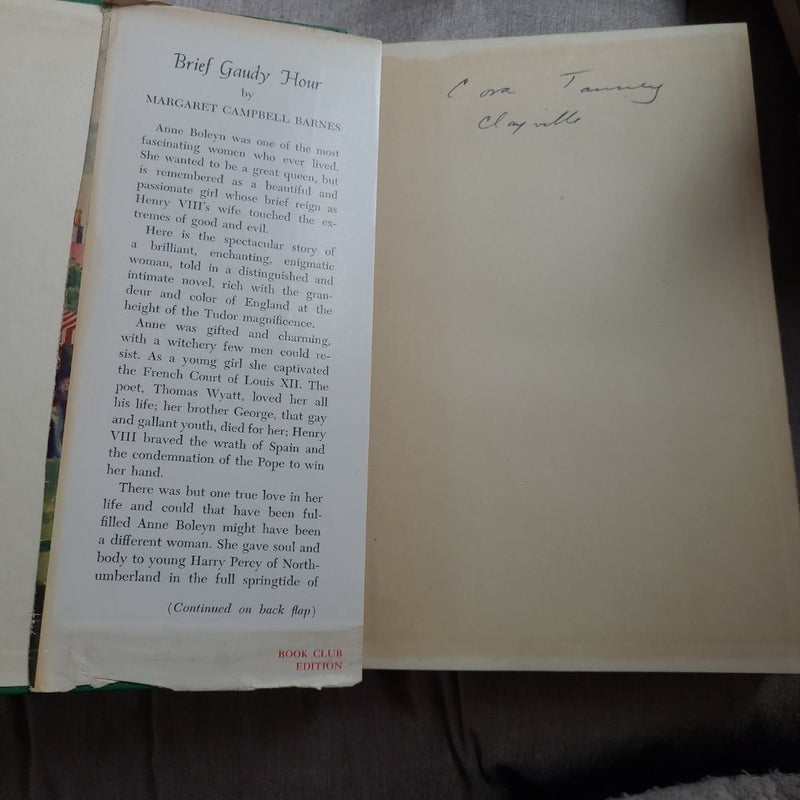 Brief Gaudy Hour
by
MARGARET CAMPBELL BARNES
Anne Boleyn was one of the most
fascinating women who ever lived.
She wanted to be a great queen, but
is remembered as a beautiful and
passionate girl whose brief reign as
Henry VIII's wife touched the ex-
tremes of good and evil.
Here is the spectacular story of
a brilliant, enchanting, enigmatic
woman, told in a distinguished and
intimate novel, rich with the gran-
deur and color of England at the
height of the Tudor magnificence.
Anne was gifted and charming,
with a witchery few men could re-
sist. As a young girl she captivated
the French Court of Louis XII. The
poet, Thomas Wyatt, loved her all
his life; her brother George, that gay
and gallant youth, died for her; Henry
VIII braved the wrath of Spain and
the condemnation of the Pope to win
her hand.
There was but one true love in her
life and could that have been ful-
filled Anne Boleyn might have been
a different woman. She gave soul and
body to young Harry Percy of North-
umberland in the full springtide of
(Continued on back flap)
BOOK CLUB
EDITION
Cora
Clayville